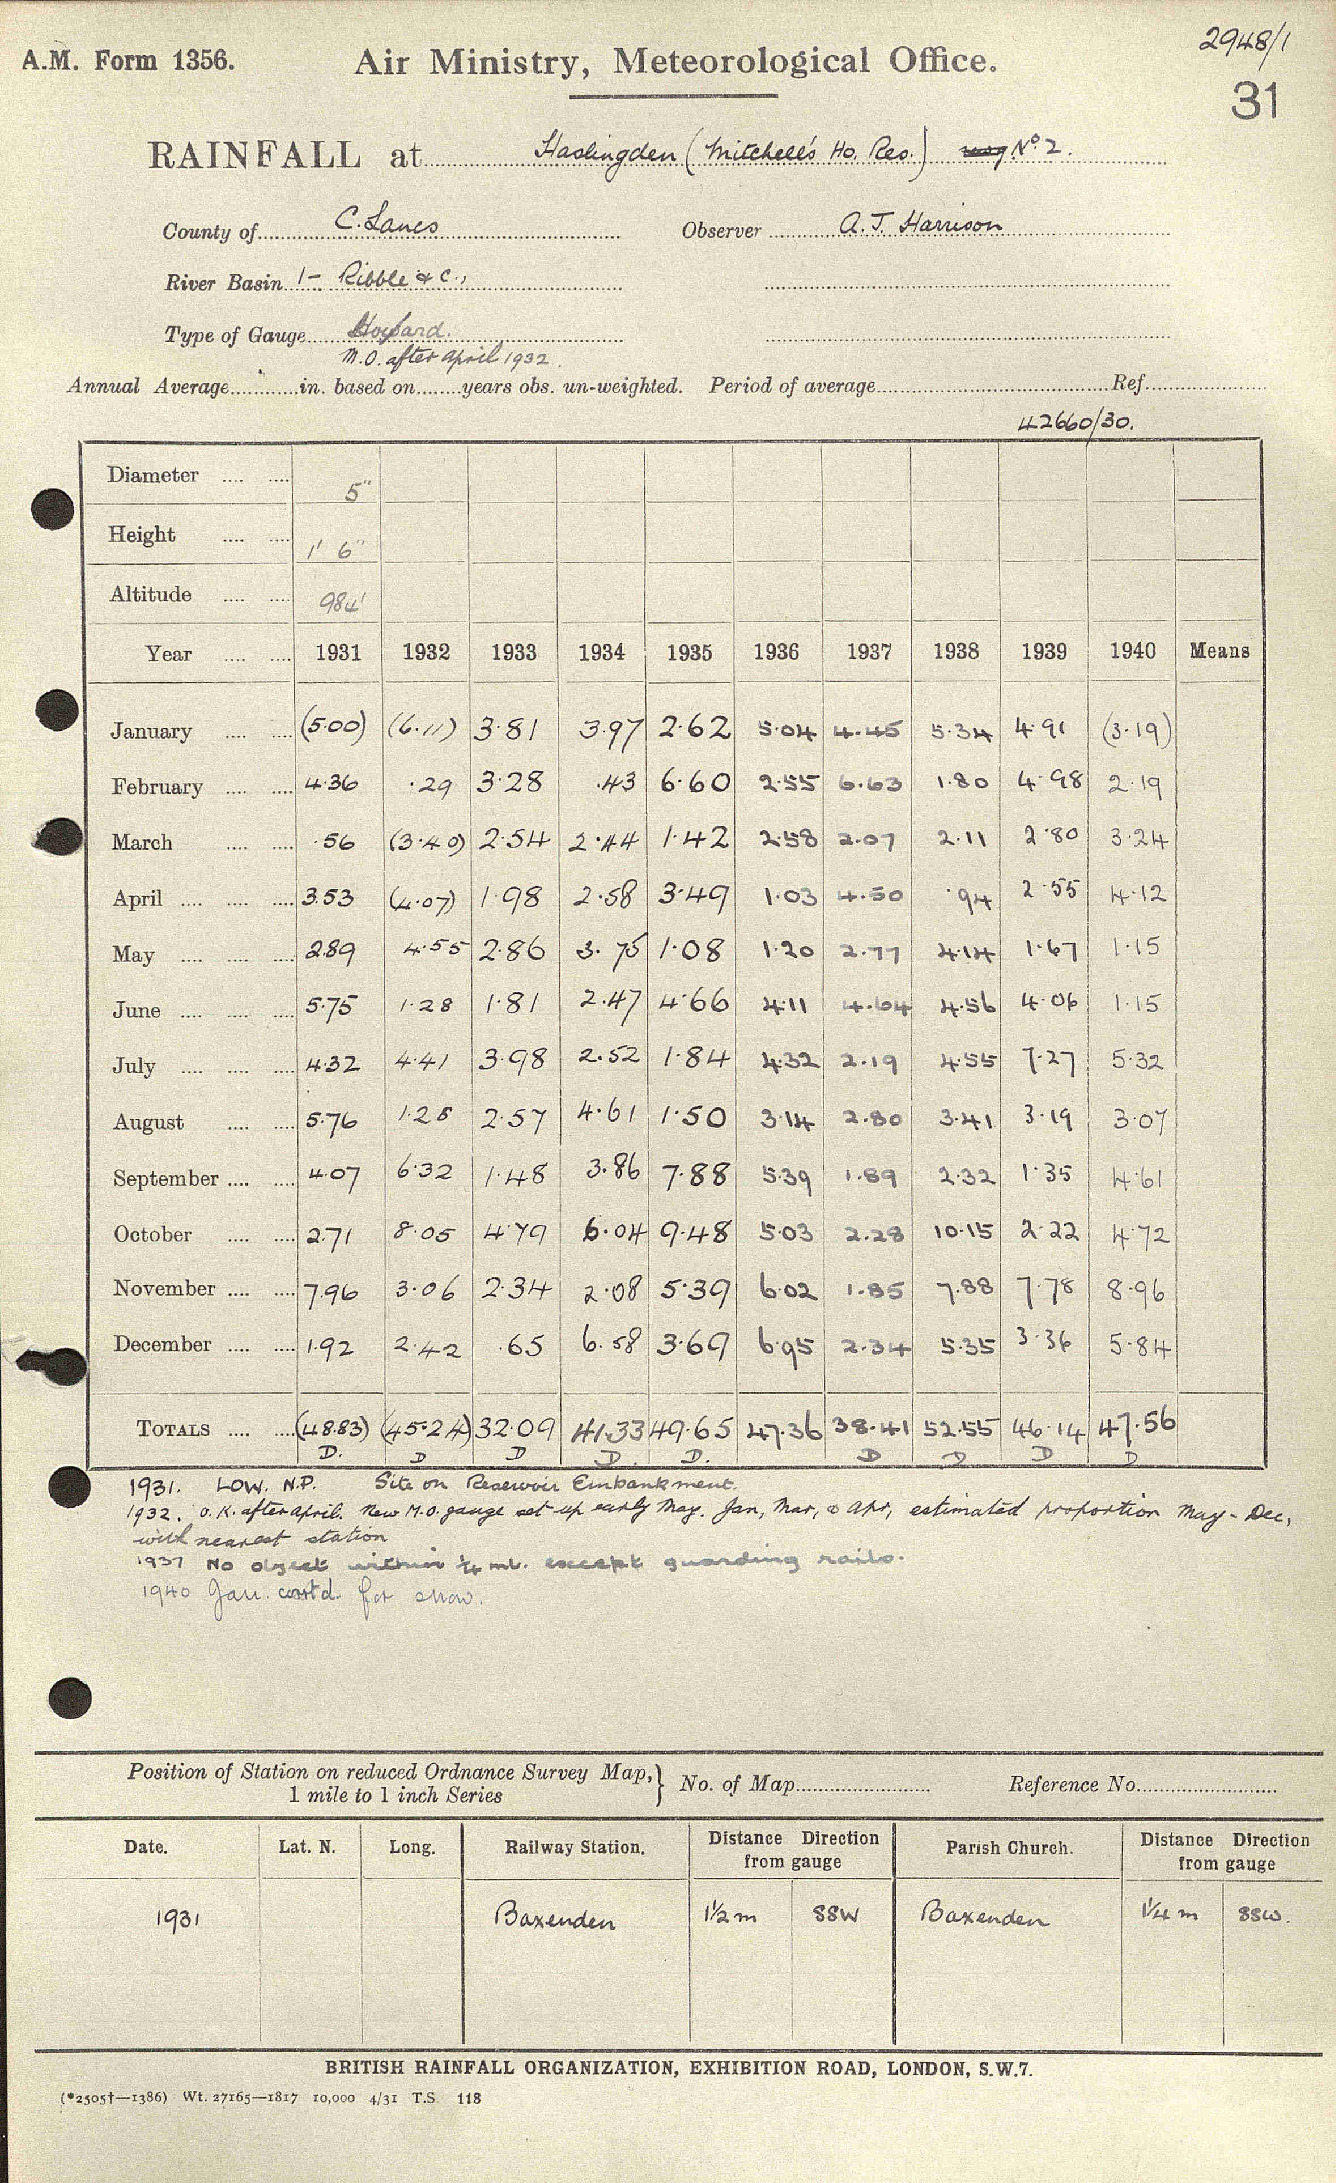 2948/1
A.M. Form 1356. Air Ministry, Meteorological Office.
31
RAINFALL at Haslingden (Mitchell's Ho. Res.) No 2.
County of C. Lancs Observer A. J. Harrison
River Basin 1- Ribble &c.,
Type of Gauge Howard.
M.O. after April 1932.
Annual Average in. based on years obs. un-weighted. Period of average Ref.
42660/30.
Diameter 5"
Height 1' 6"
Altitude 984'
Year 1931 1932 1933 1934 1935 1936 1937 1938 1939 1940 Means
January (5.00) (6.11) 3.81 3.97 2.62 5.04 4.45 5.34 4.91 (3.19)
February 4.36 .29 3.28 .43 6.60 2.55 6.63 1.80 4.98 2.19
March .56 (3.40) 2.54 2.44 1.42 2.58 2.07 2.11 2.80 3.24
April 3.53 (4.07) 1.98 2.58 3.49 1.03 4.50 .94 2.55 4.12
May 2.89 4.55 2.86 3.75 1.08 1.20 2.77 4.14 1.67 1.15
June 5.75 1.28 1.81 2.47 4.66 4.11 4.64 4.56 4.06 1.15
July 4.32 4.41 3.98 2.52 1.84 4.32 2.19 4.55 7.27 5.32
August 5.76 1.28 2.57 4.61 1.50 3.14 2.80 3.41 3.19 3.07
September 4.07 6.32 1.48 3.86 7.88 5.39 1.89 2.32 1.35 4.61
October 2.71 8.05 4.79 6.04 9.48 5.03 2.28 10.15 2.22 4.72
November 7.96 3.06 2.34 2.08 5.39 6.02 1.85 7.88 7.78 8.96
December 1.92 2.42 .65 6.58 3.69 6.95 2.34 5.35 3.36 5.84
TOTALS (48.83) (45.24) 32.09 41.33 49.65 47.36 38.41 52.55 46.14 47.56
D. D D D. D. D D D D
1931. LOW. N.P. Site on Reservoir Embankment.
1932. O.K. after April. New M.O. gauge set up early May. Jan, Mar, & Apr, estimated proportion May - Dec,
with nearest station
1937 No object within 1/4 ml. except guarding rails.
1940 Jan. corrtd. for snow.
Position of Station on reduced Ordnance Survey Map, } No. of Map Reference No.
1 mile to 1 inch Series
Date. Lat. N. Long. Railway Station. Distance Direction from gauge Parish Church. Distance Direction from gauge
1931 Baxenden 1 1/2 m SSW Baxenden 1 1/4 m SSW.
BRITISH RAINFALL ORGANIZATION, EXHIBITION ROAD, LONDON, S.W.7.
(*2505†—1386) Wt. 27165—1817 10,000 4/31 T.S. 118